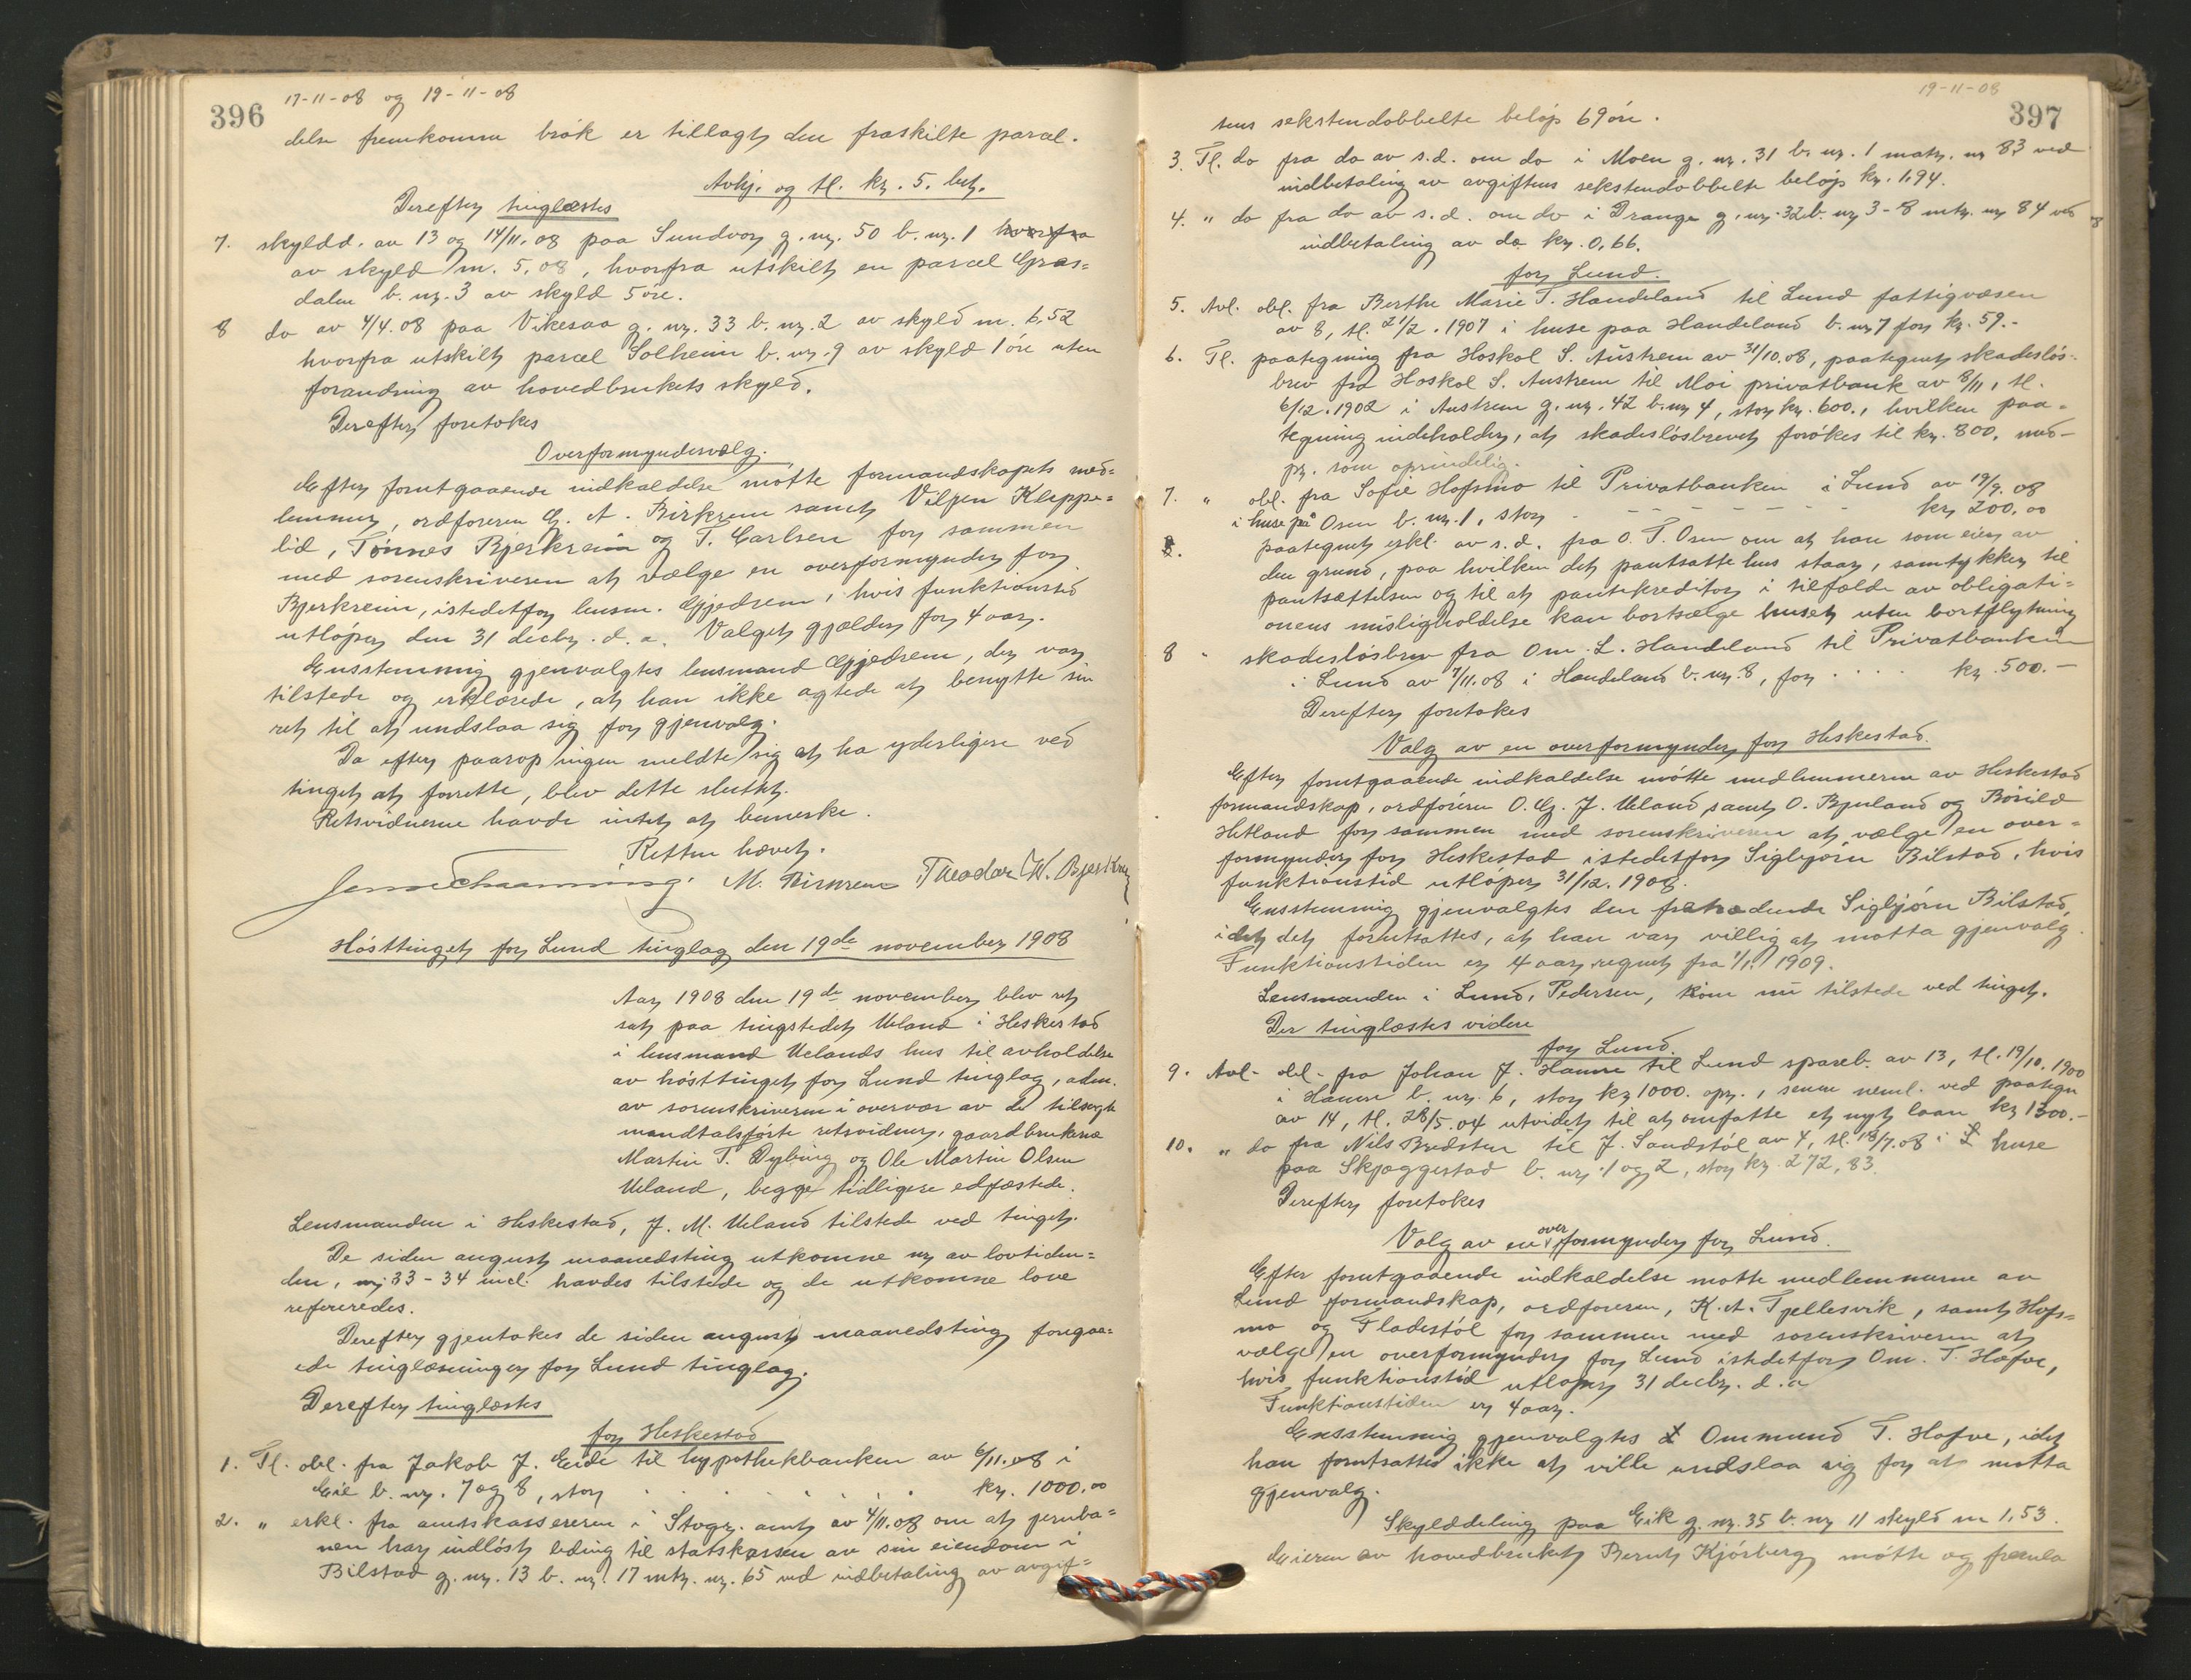 396
17-11-08 og 19-11-08
delse fremkomne brøk er tillagt den fraskilte parcel.
Avhj. og tl. kr. 5. bet.
Derefter tinglæstes
7. skyldd. av 13 og 14/11.08 paa Sundvor g. nr. 50 b. nr. 1 hvorfra
av skyld m. 5,08, hvorfra utskilt en parcel Græs=
dalen b. nr. 3 av skyld 5 øre.
8 do av 4/4.08 paa Vikesaa g. nr. 33 b. nr. 2 av skyld m. 6,52
hvorfra utskilt parcel Solheim b. nr. 9 av skyld 1 øre uten
forandring av hovedbrukets skyld.
Derefter foretokes
Overformyndervalg.
Efter forutgaaende indkaldelse møtte formandskapets med=
lemmer, ordføreren G. A. Birkrem samt Vilhen Kleppe=
lid, Tønnes Bjerkreim og T. Carlsen for sammen
med sorenskriveren at vælge en overformynder for
Bjerkreim, istedetfor lensm. Gjedrem, hvis funktionstid
utløper den 31 decbr. d. a. Valget gjælder for 4 aar.
Enstemmig gjenvalgtes lensmand Gjedrem, der var
tilstede og erklærede, at han ikke agtede at benytte sin
ret til at undslaa sig for gjenvalg.
Da efter paarop ingen meldte sig at ha yderligere ved
tinget at forrette, blev dette sluttet.
Retsvidnerne havde intet at bemerke.
Retten hævet.
M. Birkrem Theodor W. Bjerkrem
Høsttinget for Lund tinglag den 19de november 1908
Aar 1908 den 19de november blev ret
sat paa tingstedet Ueland i Heskestad
i lensmand Uelands hus til avholdelse
av høsttinget for Lund tinglag, adm.
av sorenskriveren i overvær av de tilsagte
mandtalsførte retsvidner, gaardbrukerne
Martin T. Dybing og Ole Martin Olsen
Ueland, begge tidligere edfæstede.
Lensmanden i Heskestad, J. M. Ueland tilstede ved tinget.
De siden august maanedsting utkomne nr av lovtiden=
den, nr. 33-34 incl. havdes tilstede og de utkomne love
refereredes.
Derefter gjentokes de siden august maanedsting foregaa=
ede tinglæsninger for Lund tinglag.
Derefter tinglæstes
for Heskestad
1. Tl. obl. fra Jakob J. Eide til hypothekbanken av 6/11.08 i
Eie b. nr. 7 og 8, stor . . . . . . kr. 1000.00
2. " erkl. fra amtskassereren i Stvgr. amt av 4/11.08 om at jernba=
nen har indløst leding til statskassen av sin eiendom i
Bilstad g. nr. 13 b. nr. 17 mtr. nr. 65 ved indbetaling av avgif=
19-11-08
397
tens sekstendobbelte beløp 69 øre.
3. Tl. do fra do av s.d. om do i Moen g. nr. 31 b. nr. 1 matr. nr 83 ved
indbetaling av avgiftens sekstendobbelte beløp kr. 1,94.
4. " do fra do av s.d. om do i Drange g. nr. 32 b. nr 3-8 mtr. nr 84 ved
indbetaling av do kr. 0,66.
for Lund.
5. Avl. obl. fra Berthe Marie T. Handeland til Lund fattigvæsen
av 8, tl. 21/2.1907 i huse paa Handeland b. nr 7 for kr. 59.-
6. Tl. paategning fra Hoskol S. Austrem av 31/10.08, paategnet skadesløs-
brev fra Hoskol S. Austrem til Moi privatbank av 8/11, tl.
6/12.1902 i Austrem g. nr. 42 b. nr 4, stor kr. 600., hvilken paa=
tegning indeholder, at skadesløsbrevet forøkes til kr. 800. med-
pr. som oprindelig.
7. " obl. fra Sofie Hofsmo til Privatbanken i Lund av 19/9. 08
i huse på Osen b. nr. 1, stor - - - - - - - kr 200,00
8. paategnet erkl. av s.d. fra O. T. Osen om at han som eier av
den grund, paa hvilken det pantsatte hus staar, samtykker til
pantsættelsen og til at pantekreditor i tilfælde av obligati=
onens misligholdelse kan bortsælge huset uten bortflytning
8 " skadesløsbrev fra Om. L. Handeland til Privatbanken
i Lund av 7/11.08 i Handeland b. nr. 8, for . . . . kr. 500.-
Derefter foretokes
Valg av en overformynder for Heskestad.
Efter forutgaaende indkaldelse møtte medlemmerne av Heskestad
formandskap, ordføreren O. G. J. Ueland samt O. Bjuland og Bærild
Hetland for sammen med sorenskriveren at vælge en over=
formynder for Heskestad istedetfor Sigbjørn Bilstad, hvis
funktionstid utløper 31/12. 1908.
Enstemmig gjenvalgtes den fratrædende Sigbjørn Bilstad,
idet det forutsattes, at han var villig at motta gjenvalg.
Funktionstiden er 4 aar regnet fra 1/1. 1909.
Lensmanden i Lund, Pedersen, kom nu tilstede ved tinget.
Der tinglæstes videre
for Lund.
9. Avl. obl. fra Johan J. Hamre til Lund spareb. av 13, tl. 19/10. 1900
i Hamre b. nr. 6, stor kr 1000. opr., senere neml. ved paategn
av 14, tl. 28/5.04 utvidet til at omfatte et nyt laan kr 1300.-
10. " do fra Nils Bredsten til J. Sandstøl av 4, tl. 18/7.08 i huse
paa Skjæggestad b. nr. 1 og 2, stor kr. 272,83.
Derefter foretokes
Valg av en overformynder for Lund.
Efter forutgaaende indkaldelse møtte medlemmerne av
Lund formandskap, ordføreren, K. A. Tjellesvik, samt Hofs=
mo og Fladestøl for sammen med sorenskriveren at
vælge en overformynder for Lund istedetfor Om. T. Hafve,
hvis funktionstid utløper 31 decbr. d. a
Funktionstiden er 4 aar.
Enstemmig gjenvalgtes Ommund T. Hafve, idet
han forutsattes ikke at ville undslaa sig for at motta
gjenvalg.
Skylddeling paa Eik g. nr. 35 b. nr 11 skyld m 1,53.
Eieren av hovedbruket Bernt Kjørberg møtte og fremla